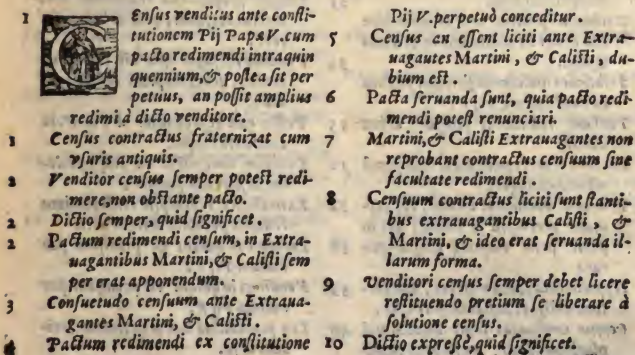 1 CEnsus venditus ante consti-
tutionem Pij Papæ V. cum
pacto redimendi intra quin
quennium, & postea sit per
petuus, an possit amplius
redimi à dicto venditore.
1 Census contractus fraternizat cum
vsuris antiquis.
2 Venditor census semper potest redi-
mere, non obstante pacto.
2 Dictio semper, quid significet.
2 Pactum redimendi censum, in Extra-
uagantibus Martini, & Calisti sem
per erat apponendum.
3 Consuetudo censuum ante Extraua-
gantes Martini, & Calisti.
4 Pactum redimendi ex constitutione
Pij V. perpetuò conceditur.
5 Census an essent liciti ante Extra-
uagantes Martini, & Calisti, du-
bium est.
6 Pacta seruanda sunt, quia pacto redi-
mendi potest renunciari.
7 Martini, & Calisti Extrauagantes non
reprobant contractus censuum sine
facultate redimendi.
8 Censuum contractus liciti sunt stanti-
bus extrauagantibus Calisti, &
Martini, & ideo erat seruanda il-
larum forma.
9 venditori census semper debet licere
restituendo pretium se liberare à
solutione census.
10 Dictio expressè, quid significet.